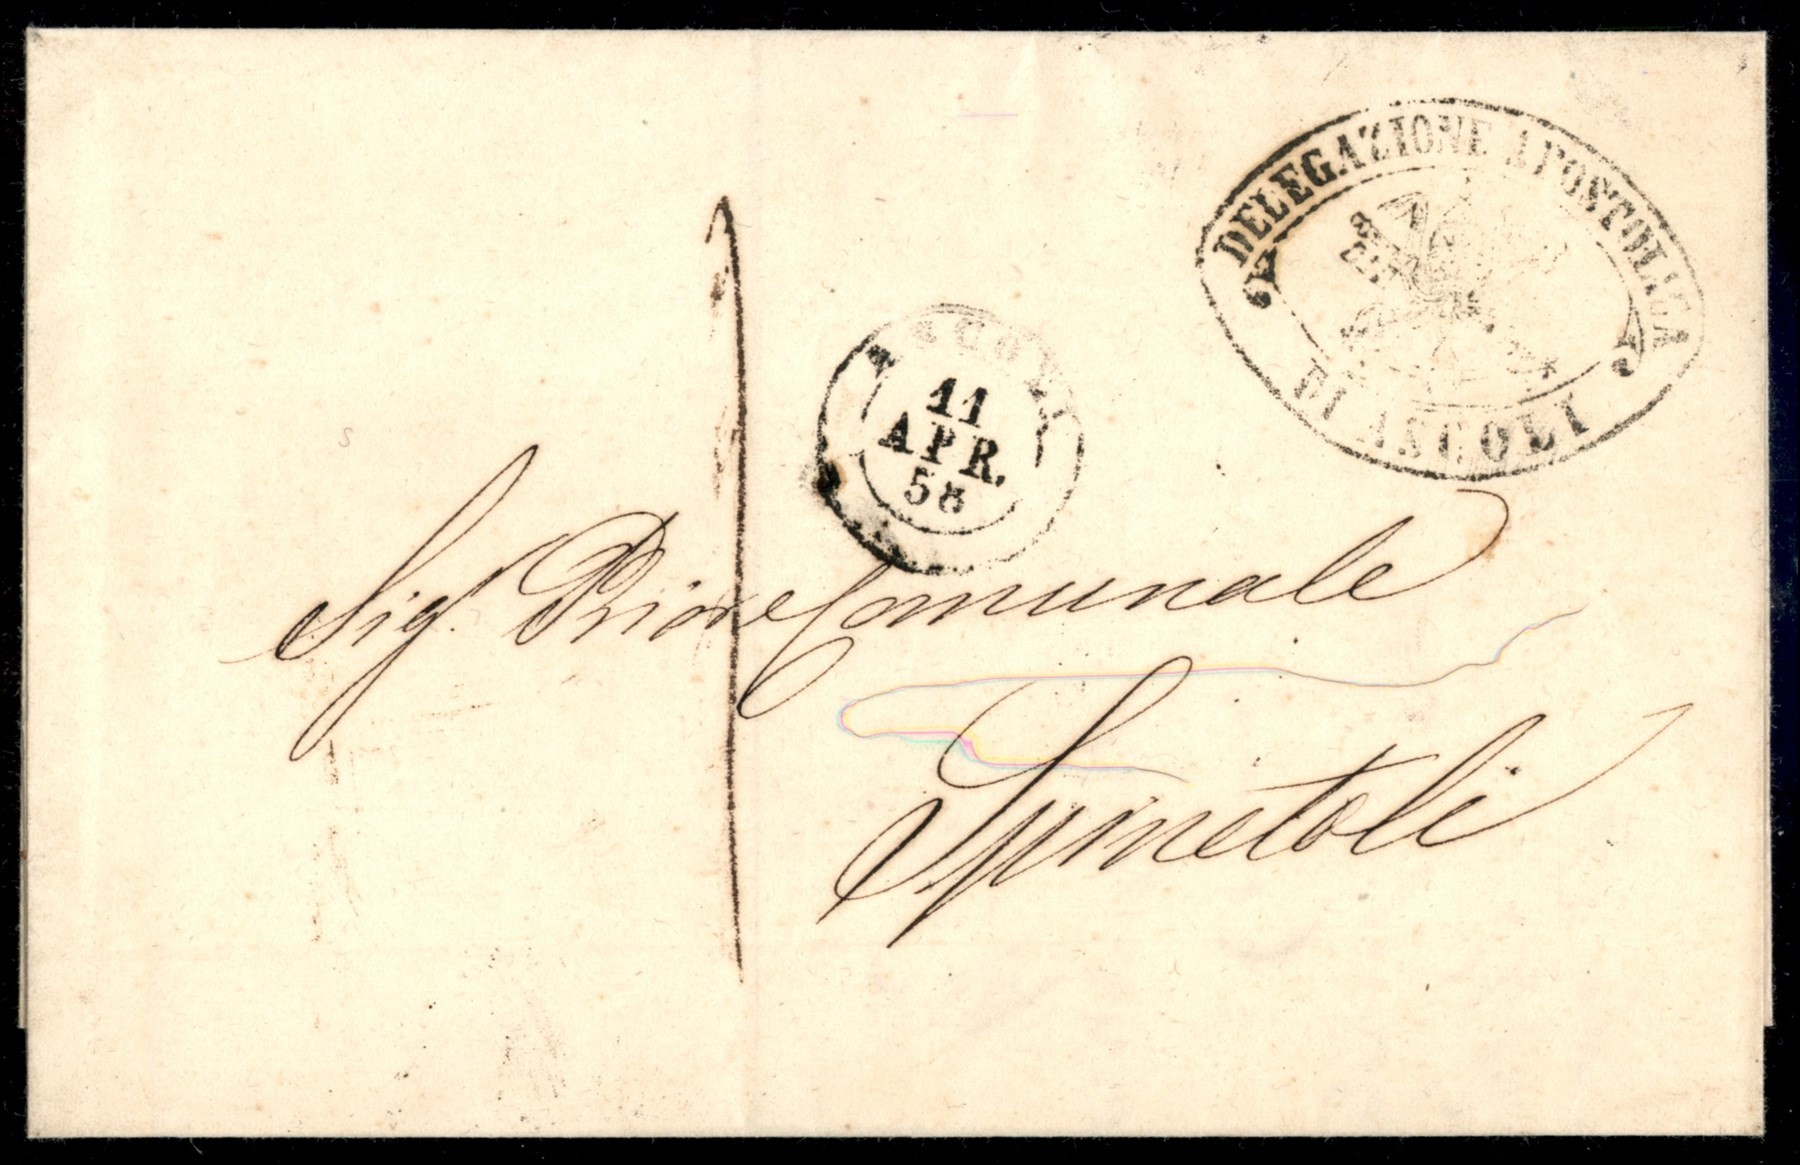 DELEGAZIONE APOSTOLICA
DI ASCOLI
ASCOLI
11
APR.
58
1
Sig. Priore Comunale
Spinetoli